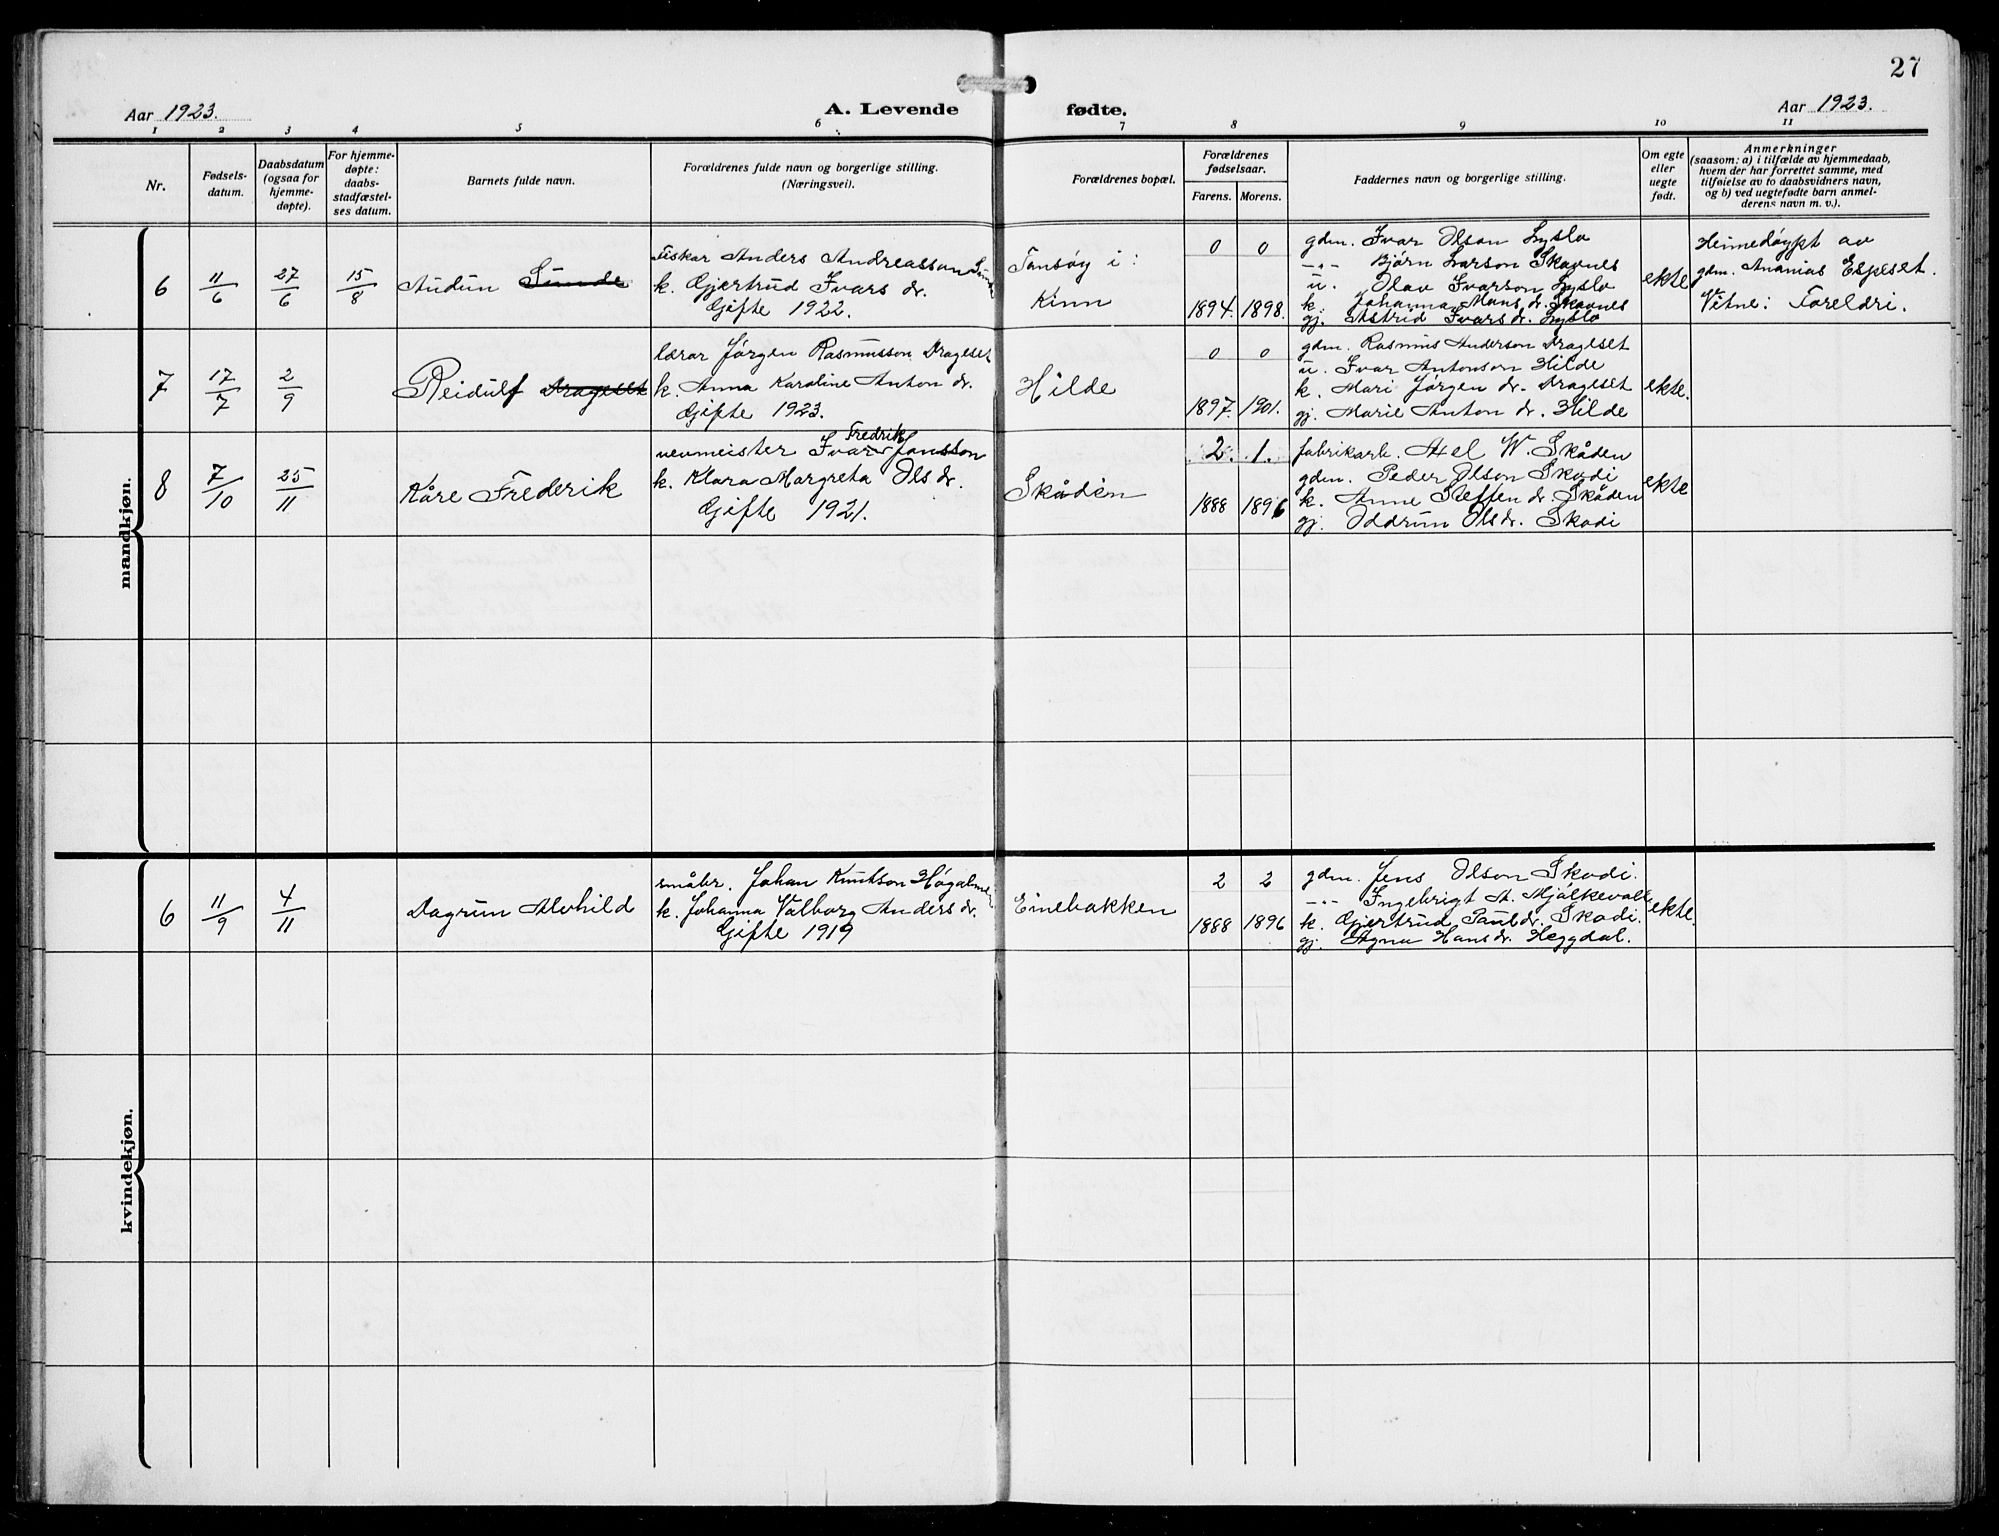 27
Aar 1923.
A. Levende fødte.
Aar 1923.
1 2 3 4 5 6 7 8 9 10 11
Nr.
Fødsels-
datum.
Daabsdatum
(ogsaa for
hjemme-
døpte).
For hjemme-
døpte:
daabs-
stadfæstel-
ses datum.
Barnets fulde navn.
Forældrenes fulde navn og borgerlige stilling.
(Næringsvei).
Forældrenes bopæl.
Forældrenes
fødselsaar.
Farens. Morens.
Faddernes navn og borgerlige stilling.
Om egte
eller
uegte
født.
Anmerkninger
(saasom: a) i tilfælde av hjemmedaab,
hvem der har forrettet samme, med
tilføielse av to daabsvidners navn,
og b) ved uegtefødte barn anmel-
derens navn m. v.).
mandkjøn.
6 11/6 27/6 15/8 Audun Sunde
Fiskar Anders Andreasson Sunde
k. Gjertrud Ivars dr.
Gifte 1922.
Tansøy i:
Kinn
0 0
1894. 1898.
gdm. Ivar Olson Lyslo
-"- Bjørn Larson Skavnes
u. Olav Ivarson Lyslo
k. Johanna Mons dr. Skavnes
gj. Astrid Ivars dr. Lyslo
ekte
Heimedøypt av
gdm. Ananias Espeset.
Vitne: Foreldri.
7 17/7 2/9 Reidulf Drageset
lærar Jørgen Rasmusson Drageset
k. Anna Karoline Anton dr.
Gifte 1923.
Hilde
0 0
1897. 1901.
gdm. Rasmus Anderson Drageset
u. Ivar Antonson Hilde
k. Mari Jørgen dr. Drageset
gj. Marie Anton dr. Hilde
ekte.
8 7/10 25/11 Kåre Frederik
vevmeister Ivar Fredrik Jonsson
k. Klara Margreta Ols dr.
Gifte 1921.
Skåden
2. 1.
1888 1896
fabrikarb. Axel W. Skåden
gdm. Peder Olson Skodi
k. Anne Steffen dr. Skåden
gj. Oddrun Ols dr. Skodi
ekte
kvindekjøn.
6 11/9 4/11 Dagrun Alvhild
småbr. Johan Knutson
k. Johanna Valborg Anders dr.
Gifte 1919
Einebakken
2 2
1888 1896
gdm. Jens Olson Skodi.
-"- Ingebrigt A. Mjålkevoll
k. Gjertrud Paul dr. Skodi.
gj. Agna Hans dr. Heggdal.
ekte.